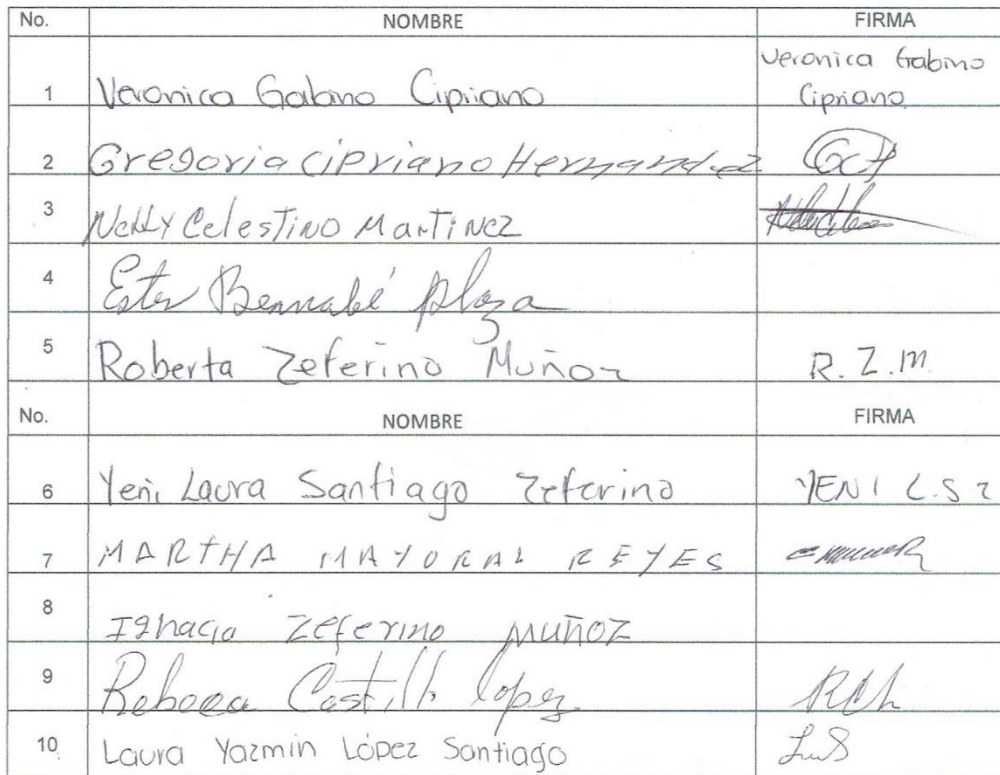 No. NOMBRE FIRMA
1 Veronica Gabino Cipriano Veronica Gabino Cipriano
2 Gregoria Cipriano Hernandez GCH
3 Nelly Celestino Martinez
4 Ester Bernabé plaza
5 Roberta Zeferino Muñoz R.Z.M.
No. NOMBRE FIRMA
6 Yeni Laura Santiago Zeferino YENI L.S Z
7 MARTHA MAYORAL REYES
8 Ignacio Zeferino MUÑOZ
9 Rebeca Castillo lopez RCL
10 Laura Yazmin López Santiago